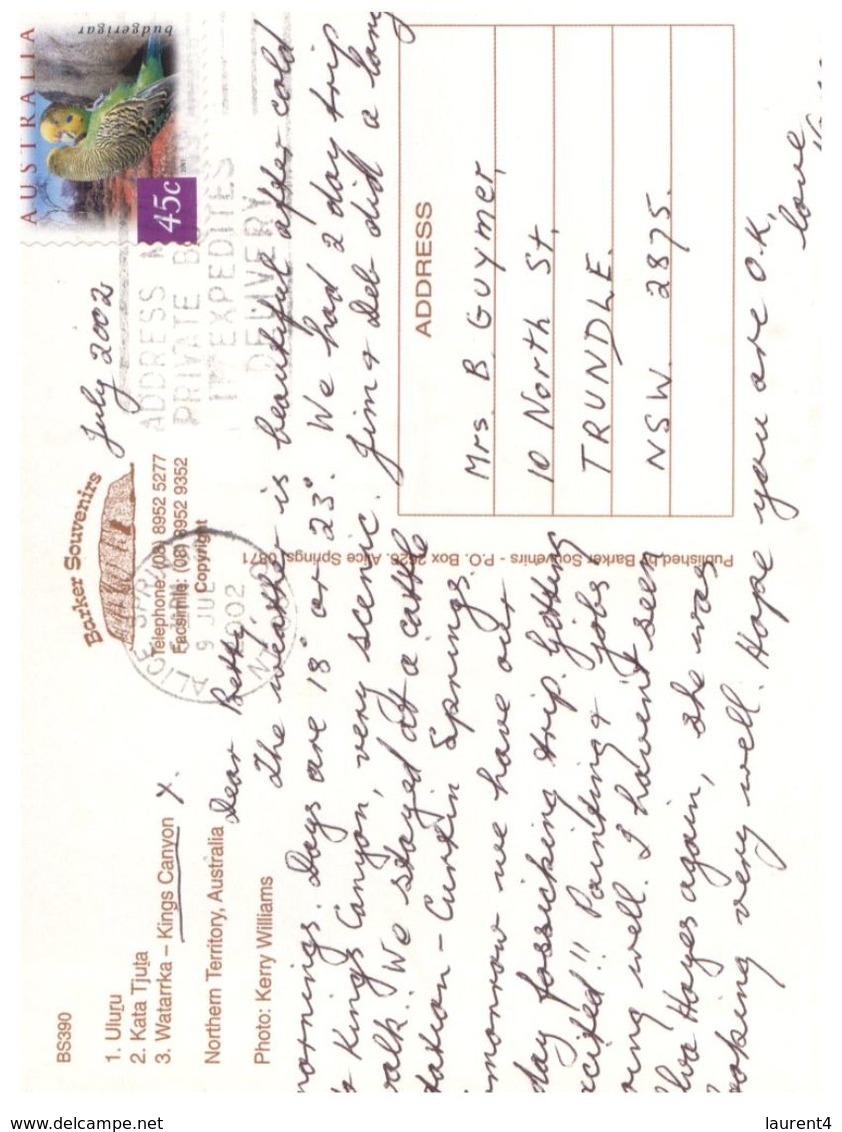 BS390
1. Uluru
2. Kata Tjuta
3. Watarrka – Kings Canyon X.
Northern Territory, Australia
Photo: Kerry Williams
Barker Souvenirs
Telephone: (08) 8952 5277
Facsimile: (08) 8952 9352
Copyright
July 2002
AUSTRALIA
budgerigar
45c
ALICE SPRI
9 JUL
2002
ADDRESS M
PRIVATE B
IT EXPEDITES
DELIVERY
Dear Betty,
The weather is beautiful after cold
ornings. Days are 18° or 23°. We had 2 day trip
Kings Canyon, very scenic. Jim & Deb did a long
alk. We stayed at a cattle
tation – Curtin Springs.
morrow we have our
day fossicking trip. Getting
xcited!! Painting & jobs
oing well. I haven't seen
lva Hayes again, she was
ooking very well. Hope you are O.K,
love
Published by Barker Souvenirs - P.O. Box 2626. Alice Springs, 0871
ADDRESS
Mrs. B. GUYmer,
10 North St,
TRUNDLE.
NSW. 2875.
delcampe.net
laurent4